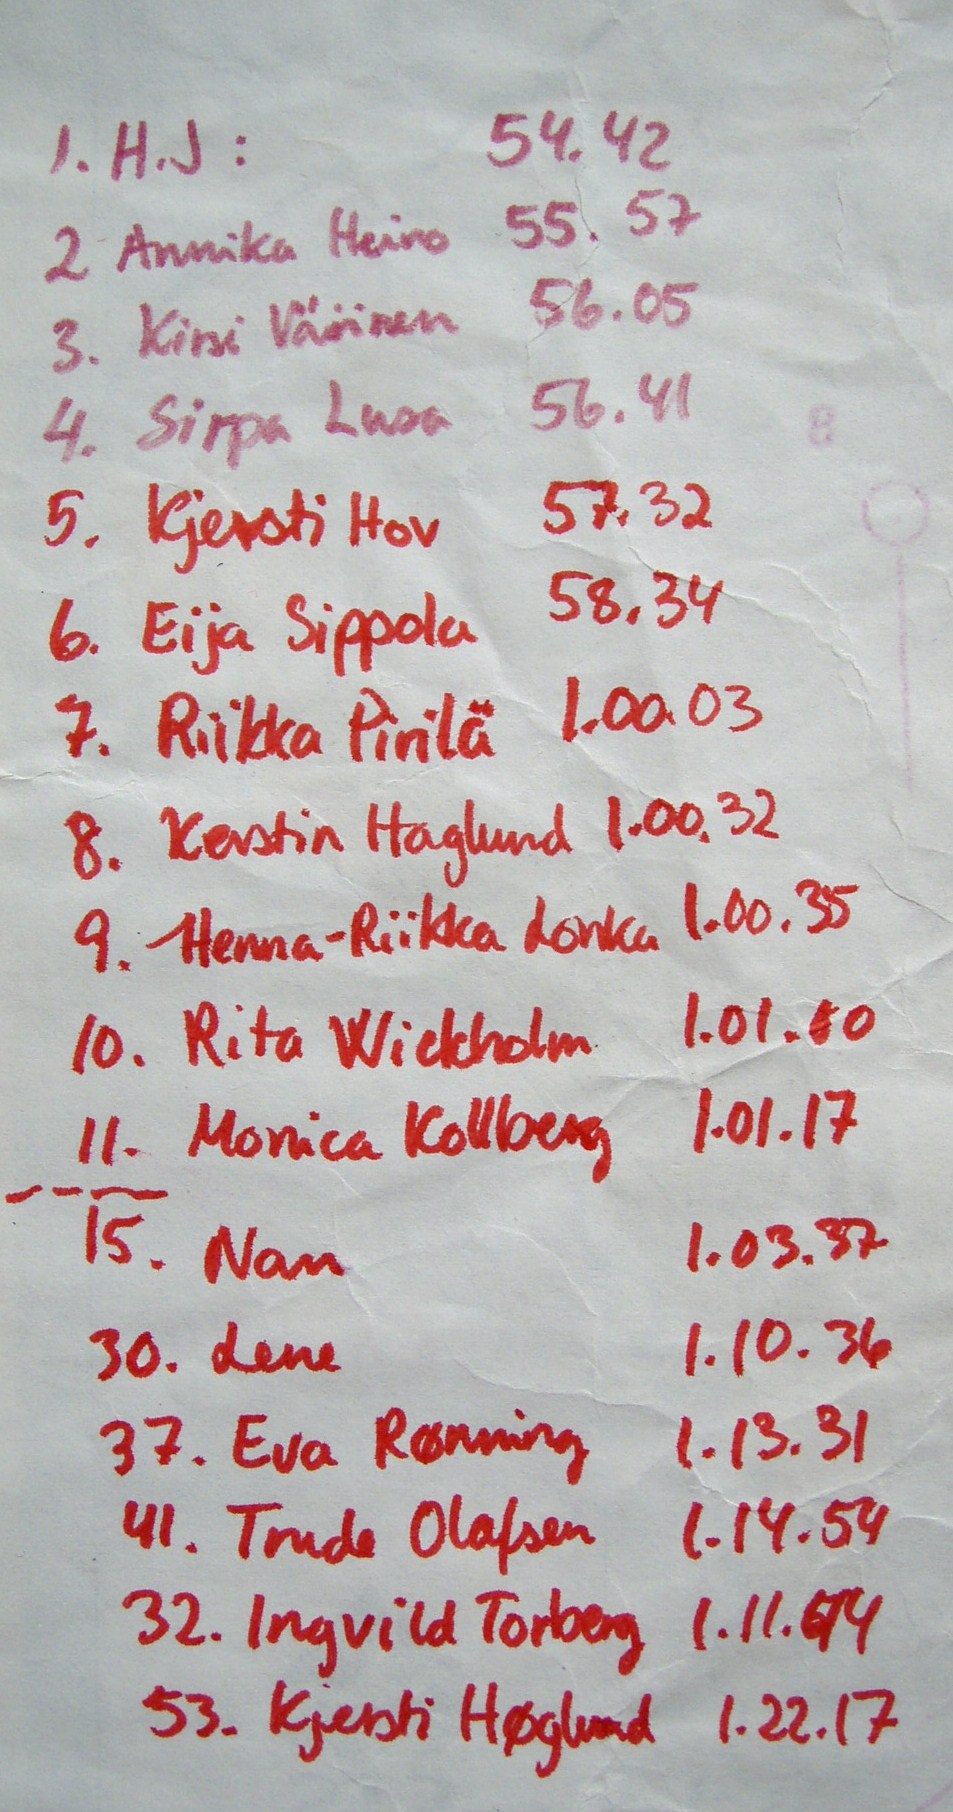 1. H.J : 54.42
2 Annika Heino 55.57
3. Kirsi Väinen 56.05
4. Sirpa Lusa 56.41
8
5. Kjersti Hov 57.32
6. Eija Sippola 58.34
7. Riikka Pirilä 1.00.03
8. Kerstin Haglund 1.00.32
9. Henna-Riikka Lonka 1.00.35
10. Rita Wickholm 1.01.10
11. Monica Kollberg 1.01.17
15. Nan 1.03.37
30. Lene 1.10.36
37. Eva Rønning 1.13.31
41. Trude Olafsen 1.14.54
32. Ingvild Torberg
53. Kjersti Høglund 1.22.17